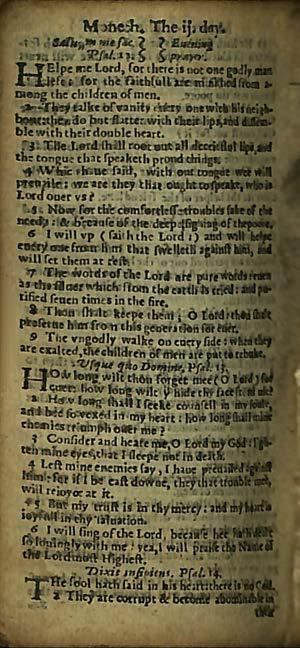 Moneth. The ij. day.
Saluum me fac. Euening
Psal. 12. prayer.
HElpe me Lord, for there is not one godly man
lefe: for the faithfull are minished from a-
mong the children of men.
2 They talke of vanity euery one with his neigh-
bour: they do but flatter with their lips, and dissem-
ble with their double heart.
3 The Lord shall root out all deceitful lips, and
the tongue that speaketh proud things.
4 Which haue said, with our tongue wee will
preuaile: we are they that ought to speake, who is
Lord ouer vs?
5 Now for the comfortlesse troubles sake of the
needy: & because of the deep sighing of the poore,
6 I will vp (saith the Lord:) and will helpe
euery one from him that swelleth against him, and
will set them at rest.
7 The words of the Lord are pure words: euen
as the siluer which from the earth is tried: and pu-
rified seuen times in the fire.
8 Thou shalt keepe them, O Lord: thou shalt
preserue him from this generation for euer.
9 The vngodly walke on euery side: when they
are exalted, the children of men are put to rebuke.
Vsque quo Domine, Psal. 13.
HOw long wilt thou forget mee (O Lord) for
euer: how long wilt ÿ hide thy face from me?
2 How long shall I seeke counsell in my soule,
and bee so vexed in my heart: how long shall mine
enemies triumph ouer me?
3 Consider and heare me, O Lord my God: ligh-
ten mine eyes, that I sleepe not in death.
4 Left mine enemies say, I haue preuailed against
him: for if I be cast downe, they that trouble mee,
will reioyce at it.
5 But my trust is in thy mercy: and my heart is
ioyfull in thy saluation.
6 I will sing of the Lord, because hee hath dealt
so louingly with me: yea, I will praise the Name of
the Lord most Highest.
Dixit insipiens. Psal. 14.
THe fool hath said in his heart: there is no God.
2 They are corrupt & become abominable in
their